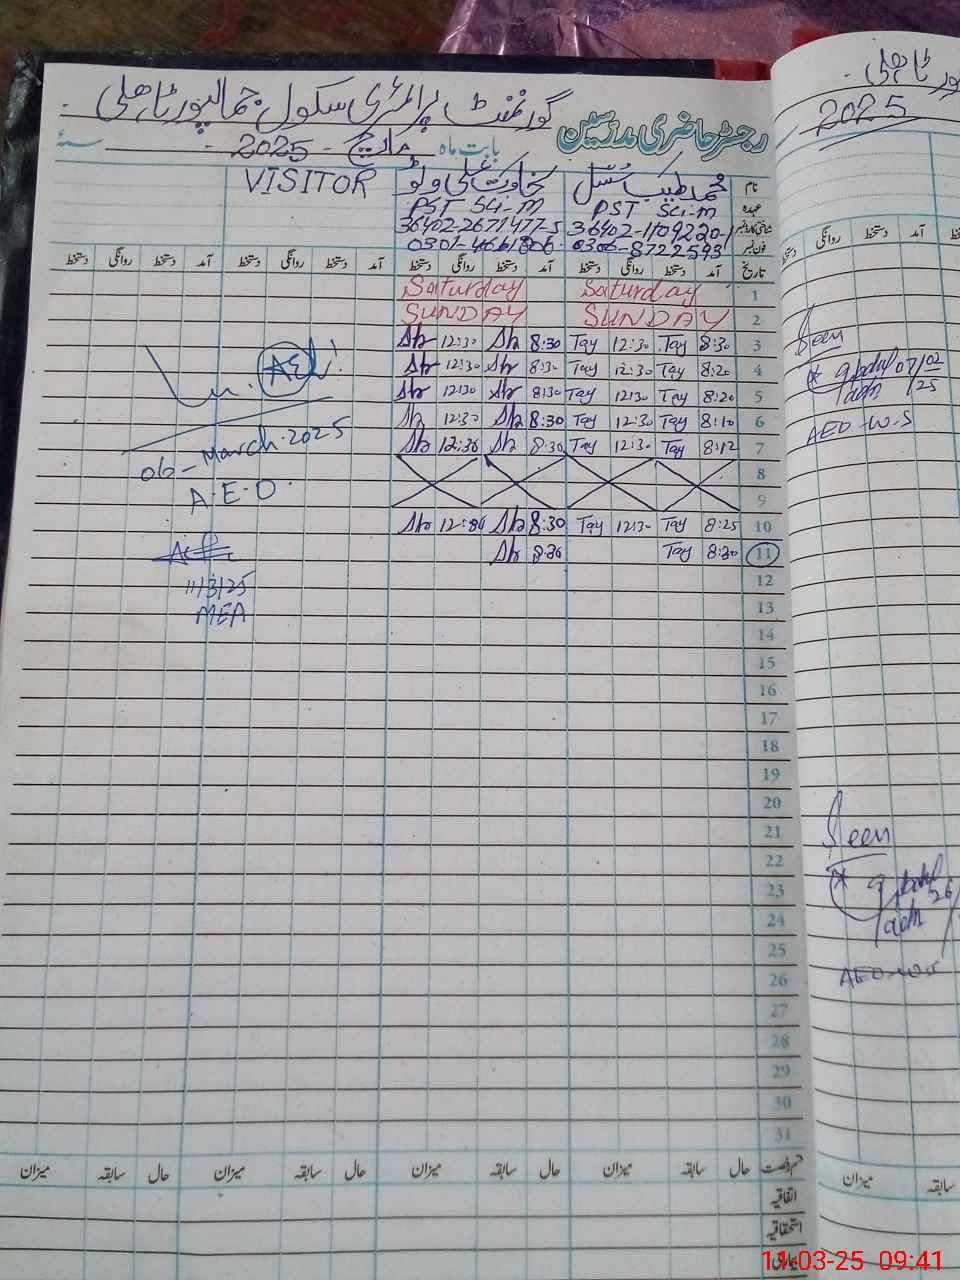 گورنمنٹ پرائمری سکول جمالپور ٹاہلی
رجسٹر حاضری مدرسین
بابت ماہ مارچ - 2025 سنۂ
نام محمد طیب سخاوت علی وٹو VISITOR
عہدہ PST Sci-M PST Sci-M
شناختی کارڈ نمبر 36402-1109220-1 36402-2671477-5
فون نمبر 0306-8722593 0301-4661806
تاریخ آمد دستخط روانگی دستخط آمد دستخط روانگی دستخط آمد دستخط روانگی دستخط آمد دستخط روانگی دستخط
1 Saturday Saturday
2 SUNDAY SUNDAY
3 8:30 Tay 12:30 Tay 8:30 Sh 12:30 Sh
4 8:20 Tay 12:30 Tay 8:30 Sh 12:30 Sh
5 8:20 Tay 12:30 Tay 8:30 Sh 12:30 Sh
6 8:10 Tay 12:30 Tay 8:30 Sh 12:30 Sh
7 8:12 Tay 12:30 Tay 8:30 Sh 12:30 Sh
8
9
10 8:25 Tay 12:30 Tay 8:30 Sh Sh
11 8:30 Tay Sh
12
13
14
15
16
17
18
19
20
21
22
23
24
25
26
27
28
29
30
31
06-March.2025
A.E.O.
11/3/25
MEA
قسم رخصت حال سابقہ میزان حال سابقہ میزان حال سابقہ میزان حال سابقہ میزان
اتفاقیہ
استحقاقیہ
بیماری
ٹاہلی
2025
آمد دستخط روانگی دستخط
Seen
07/02/25
AEO-W.S
Seen
26
AEO-W.S
سابقہ میزان
11-03-25 09:41